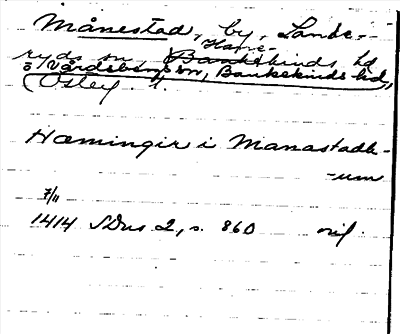 Månestad, by, Lande-
Hane-
ryds sn, Bankekinds hd
o Vårdsbergs sn, Bankekinds hd,
Östgl.
Hæmingir i Manastadh-
-um
7/11
1414 SDns 2, s. 860 orig.